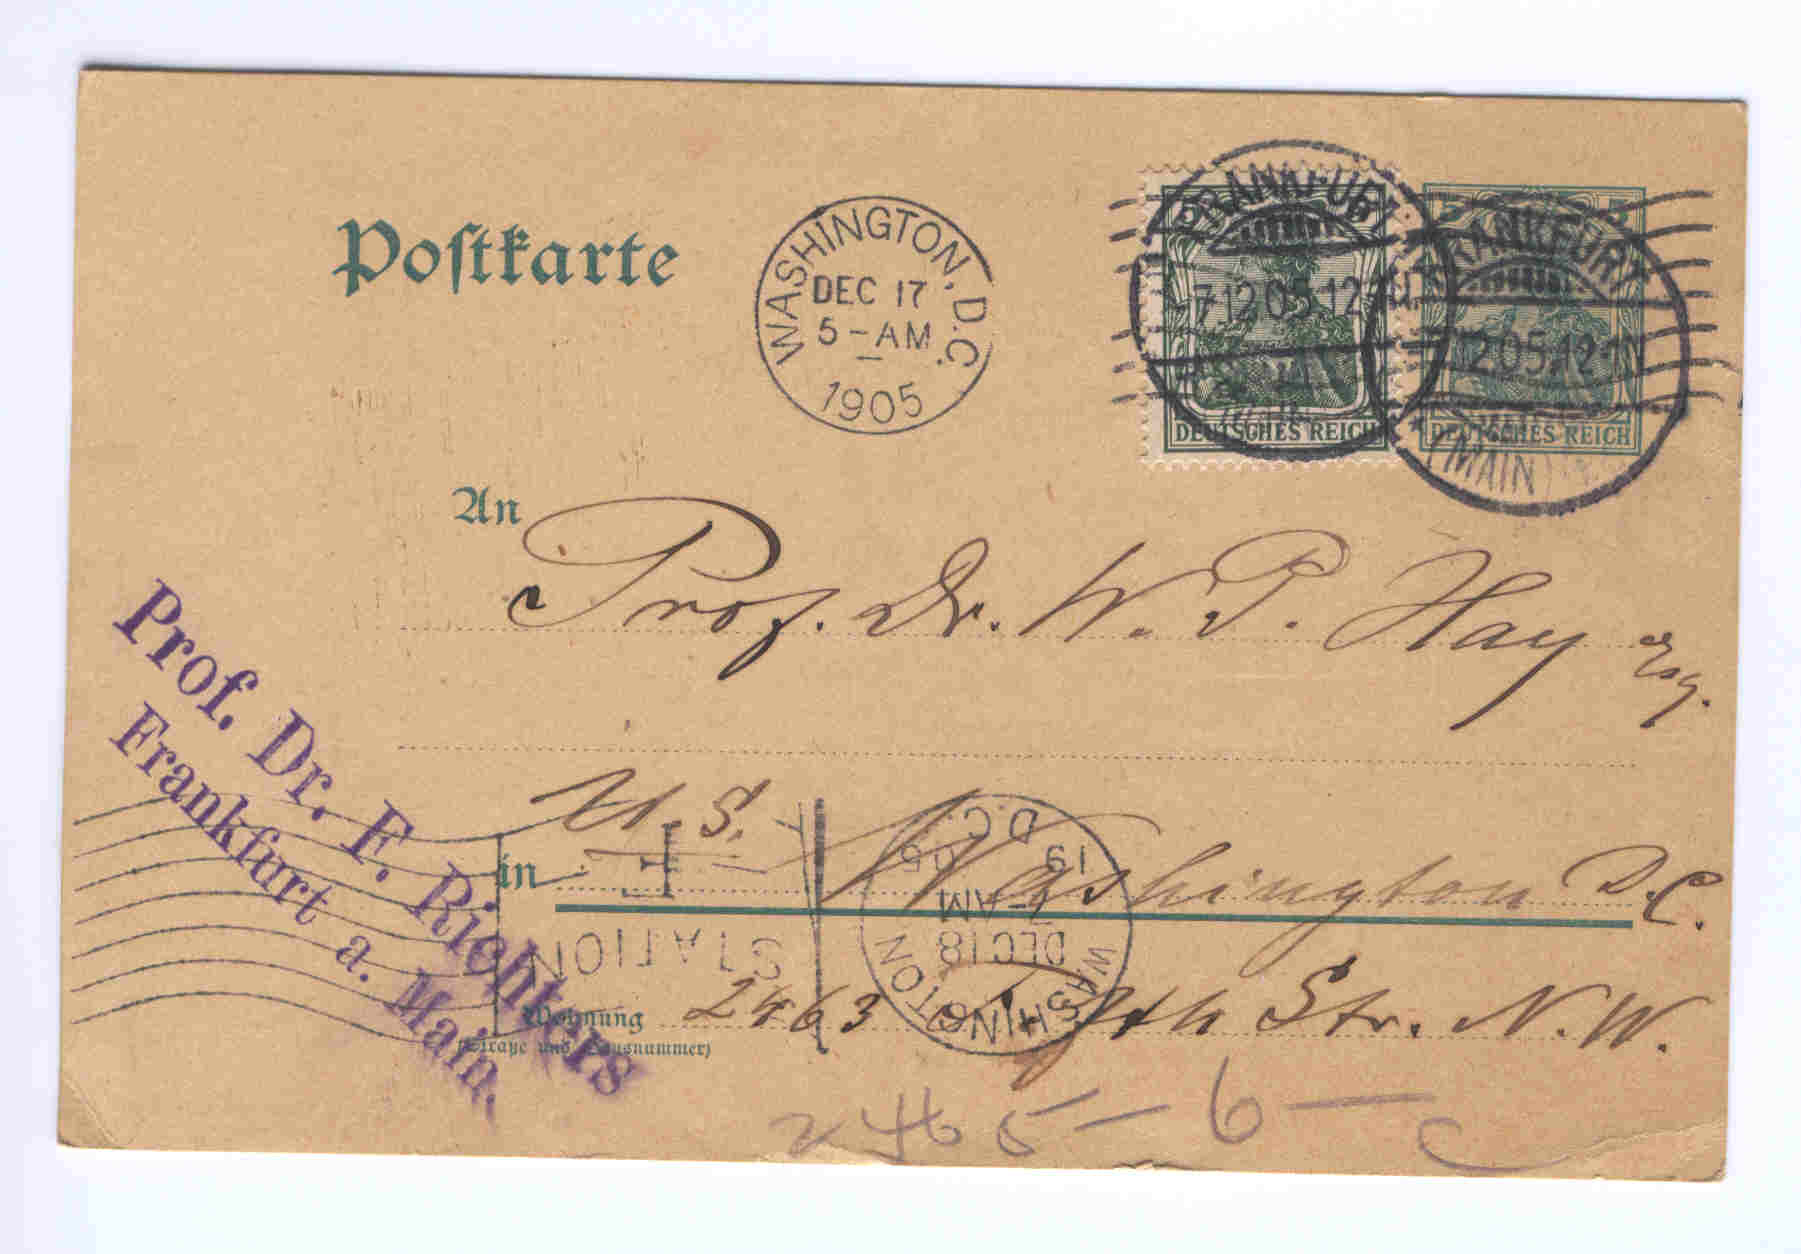 Postkarte
WASHINGTON, D.C.
DEC 17
5-AM
1905
FRANKFURT
7.12.05.12-1N.
DEUTSCHES REICH
FRANKFURT
12.05.12-1
(MAIN)
DEUTSCHES REICH
An
Prof. Dr. W. P. Hay Esq.
Prof. Dr. F. Richters
Frankfurt a. Main.
U. S.
in Washington D.C.
F
STATION
WASHINGTON D.C.
DEC 18
7-AM
19 05
Wohnung
(Straße und Hausnummer)
2463 Str. N. W.